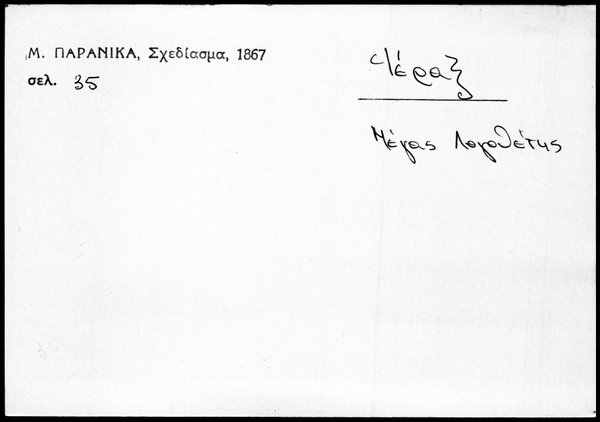 Μ. ΠΑΡΑΝΙΚΑ, Σχεδίασμα, 1867
σελ. 35
Ἱέραξ
Μέγας Λογοθέτης